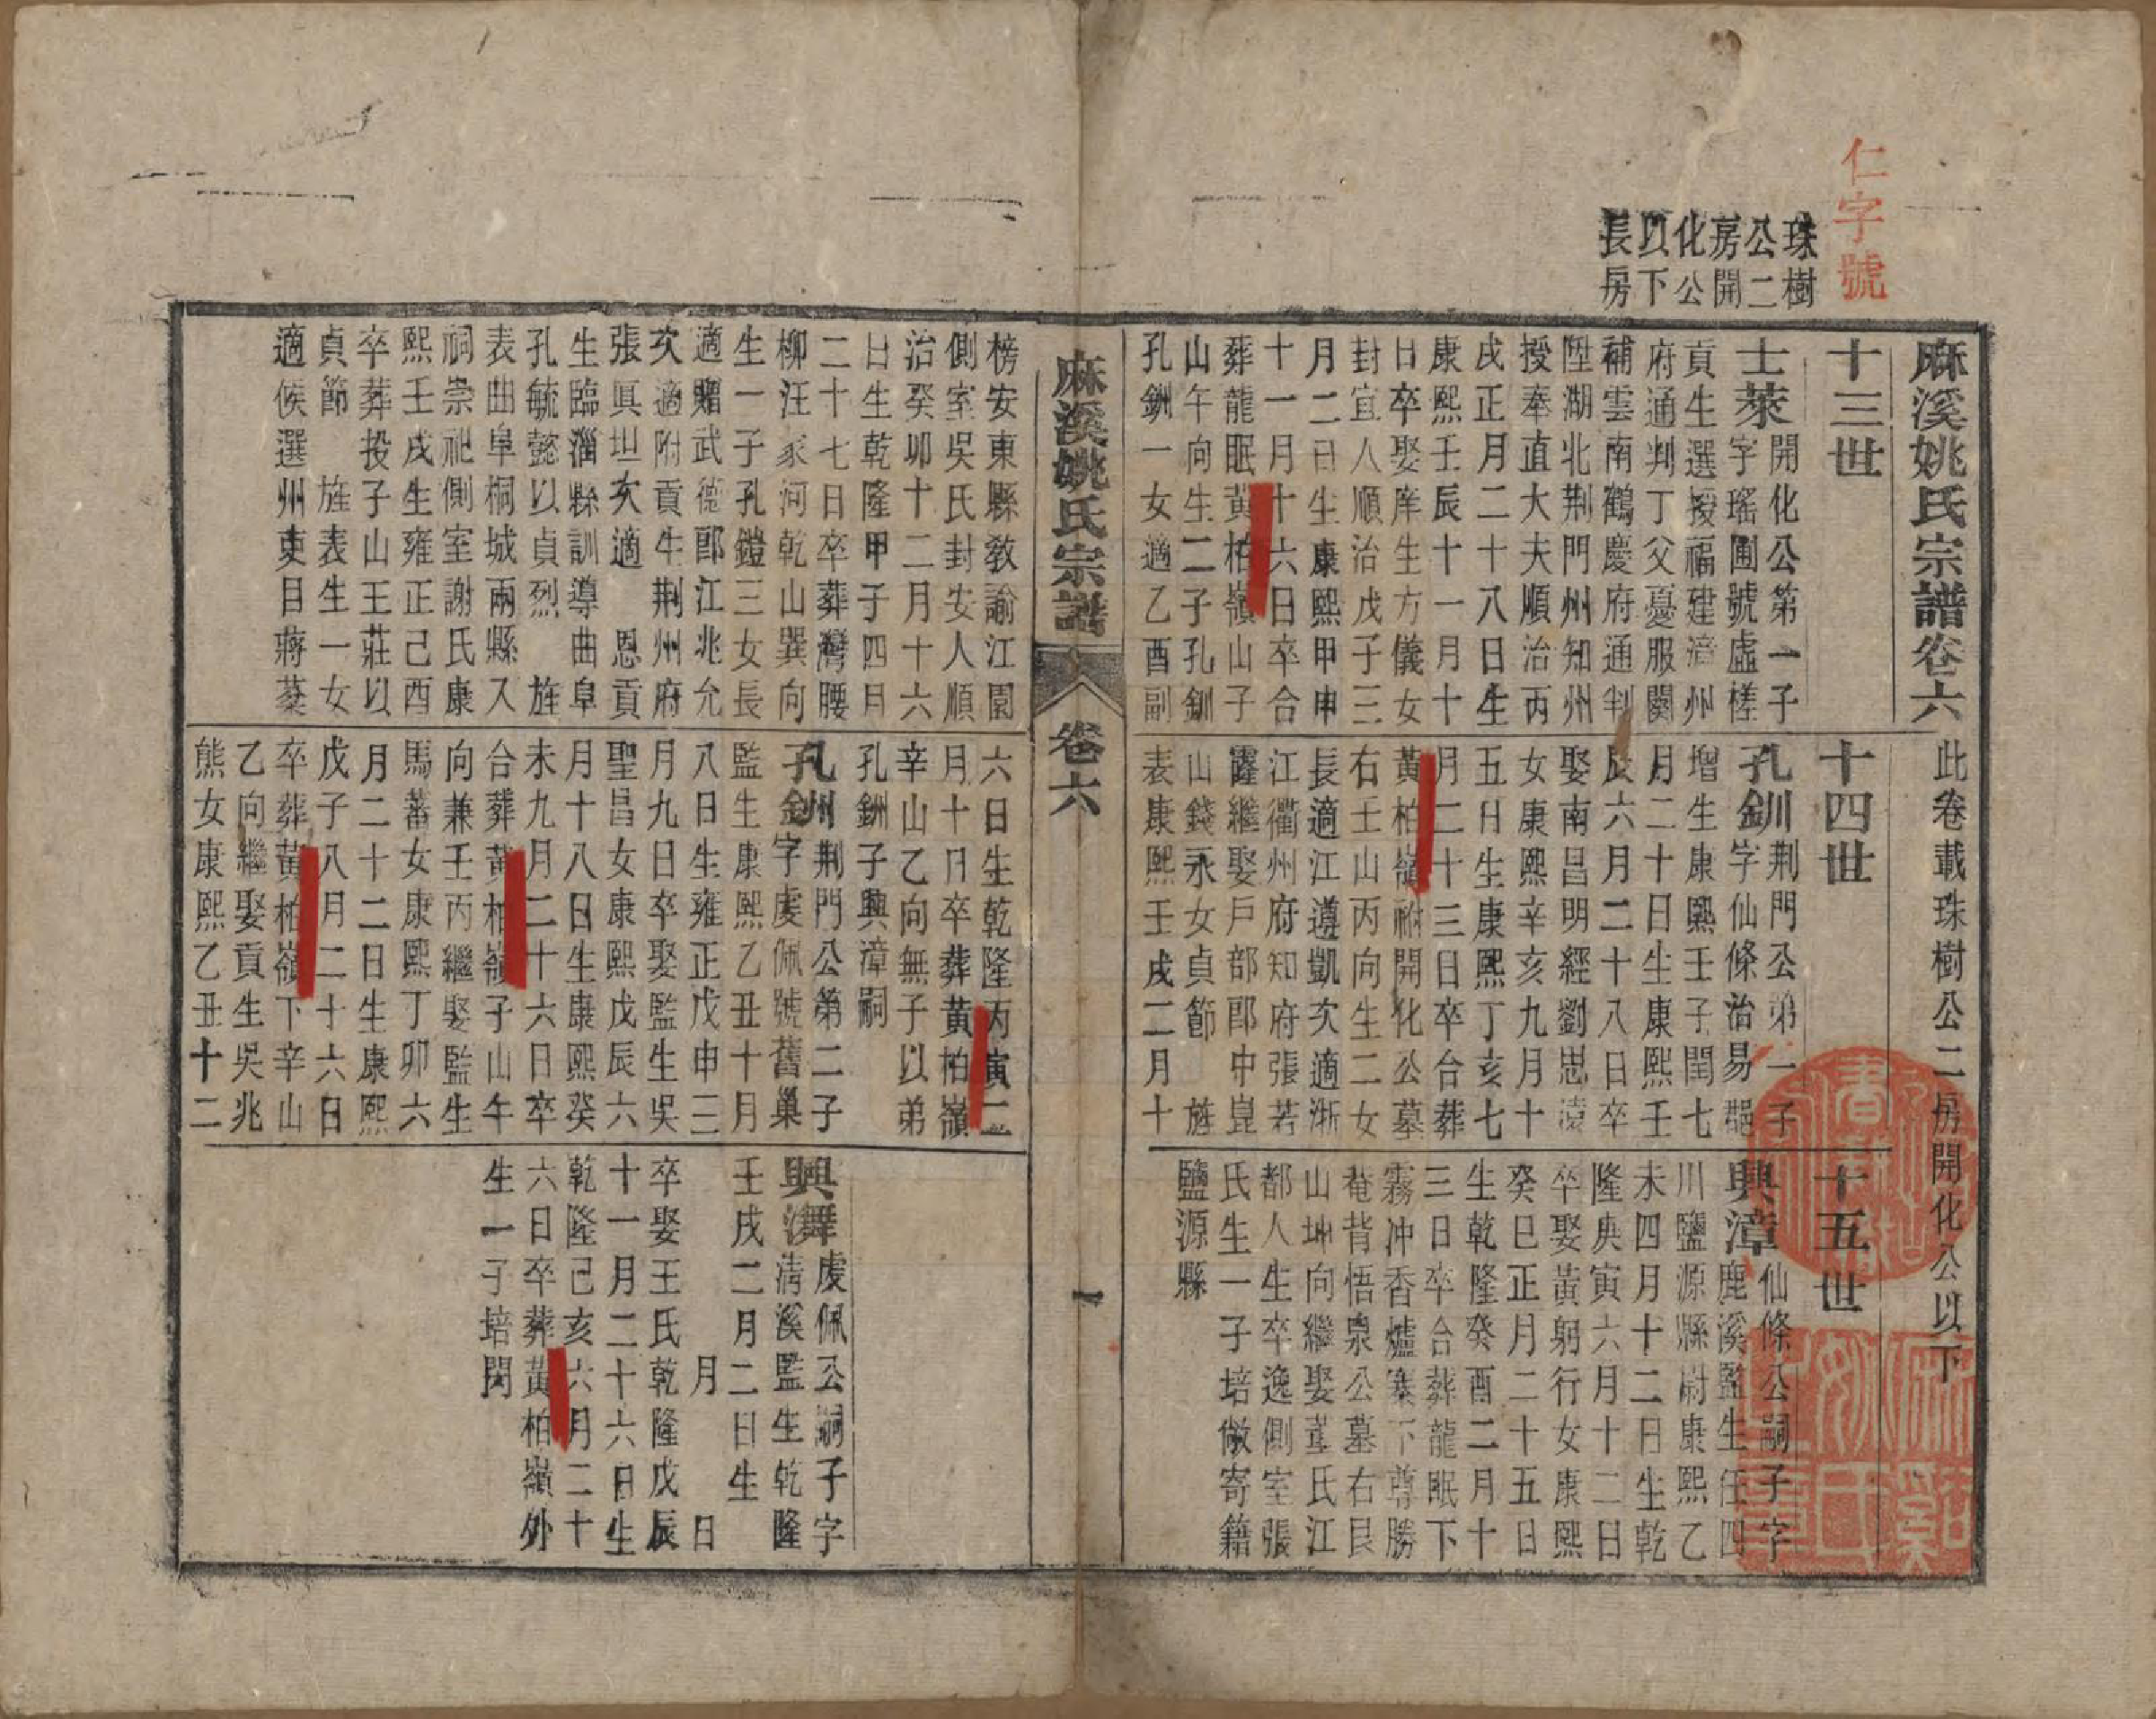 仁字號
珠樹
公二
房開
化公
以下
長房
麻溪姚氏宗譜卷六
此卷載珠樹公二房開化公以下
十三世
士萊
開化公第一子
字瑤圃號虛槎
貢生選授福建漳州
府通判丁父憂服闋
補雲南鶴慶府通判
陞湖北荆門州知州
授奉直大夫順治丙
戌正月二十八日生
康熙壬辰十一月十
日卒娶庠生方儀女
封宜人順治戊子三
月二日生康熙甲申
十一月十六日卒合
葬龍眠黃柏嶺山子
山午向生二子孔釧
孔釧一女適乙酉副
十四世
孔釧
荆門公第一子
字仙條治易
增生康熙壬子閏七
月二十日生康熙壬
辰六月二十八日卒
娶南昌明經劉思
女康熙辛亥九月十
五日生康熙丁亥七
月二十三日卒合葬
黃柏嶺祔開化公墓
右壬山丙向生二女
長適江遵凱次適浙
江衢州府知府張若
霳繼娶戶部郎中崑
山錢永女貞節　旌
表康熙壬戌二月十
十五世
興漳
仙條公嗣子字
鹿溪監生任四
川鹽源縣尉康熙乙
未四月十二日生乾
隆庚寅六月十二日
卒娶黃躬行女康熙
癸巳正月二十五日
生乾隆癸酉二月十
三日卒合葬龍眠下
霧冲香爐寨下尊勝
菴背悟泉公墓右艮
山坤向繼娶董氏江
都人生卒逸側室張
氏生一子培儆寄籍
鹽源縣
麻溪姚氏宗譜
卷六
一
榜安東縣教諭江園
側室吳氏封安人順
治癸卯十二月十六
日生乾隆甲子四月
二十七日卒葬灣腰
柳汪家河乾山巽向
生一子孔鎧三女長
適贈武德郎江兆允
次適附貢生荆州府
張眞坦次適　恩貢
生臨淄縣訓導曲阜
孔毓懿以貞烈　旌
表曲阜桐城兩縣入
祠崇祀側室謝氏康
熙壬戌生雍正己酉
卒葬投子山王莊以
貞節　旌表生一女
適候選州吏目蔣棻
六日生乾隆丙寅二
月十日卒葬黃柏嶺
辛山乙向無子以弟
孔釧子興漳嗣
孔釧
荆門公第二子
字虔佩號舊巢
監生康熙乙丑十月
八日生雍正戊申三
月九日卒娶監生吳
聖昌女康熙戊辰六
月十八日生康熙癸
未九月二十六日卒
合葬黃柏嶺子山午
向兼壬丙繼娶監生
馬蕃女康熙丁卯六
月二十二日生康熙
戊子八月二十六日
卒葬黃柏嶺下辛山
乙向繼娶貢生吳兆
熊女康熙乙丑十二
興濴
虔佩公嗣子字
清溪監生乾隆
壬戌二月二日生
　　月　　日
卒娶王氏乾隆戊辰
十一月二十六日生
乾隆己亥六月二十
六日卒葬黃柏嶺外
生一子培閎